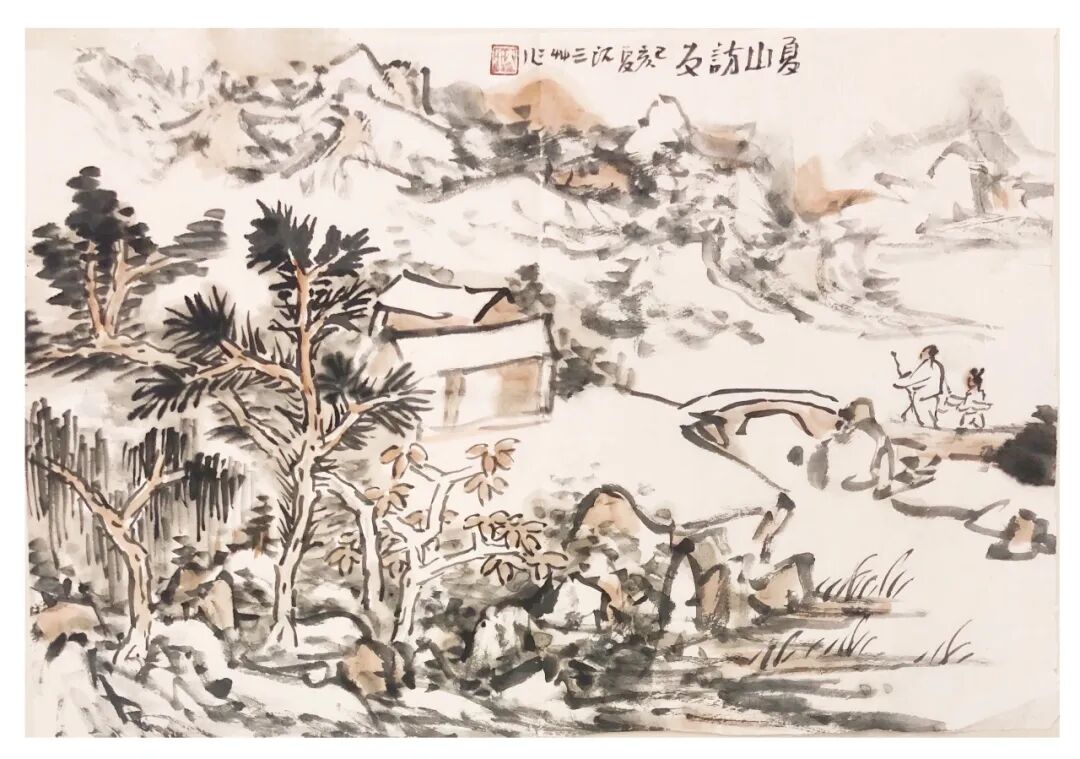 夏山訪友 己亥夏 沈三艸作